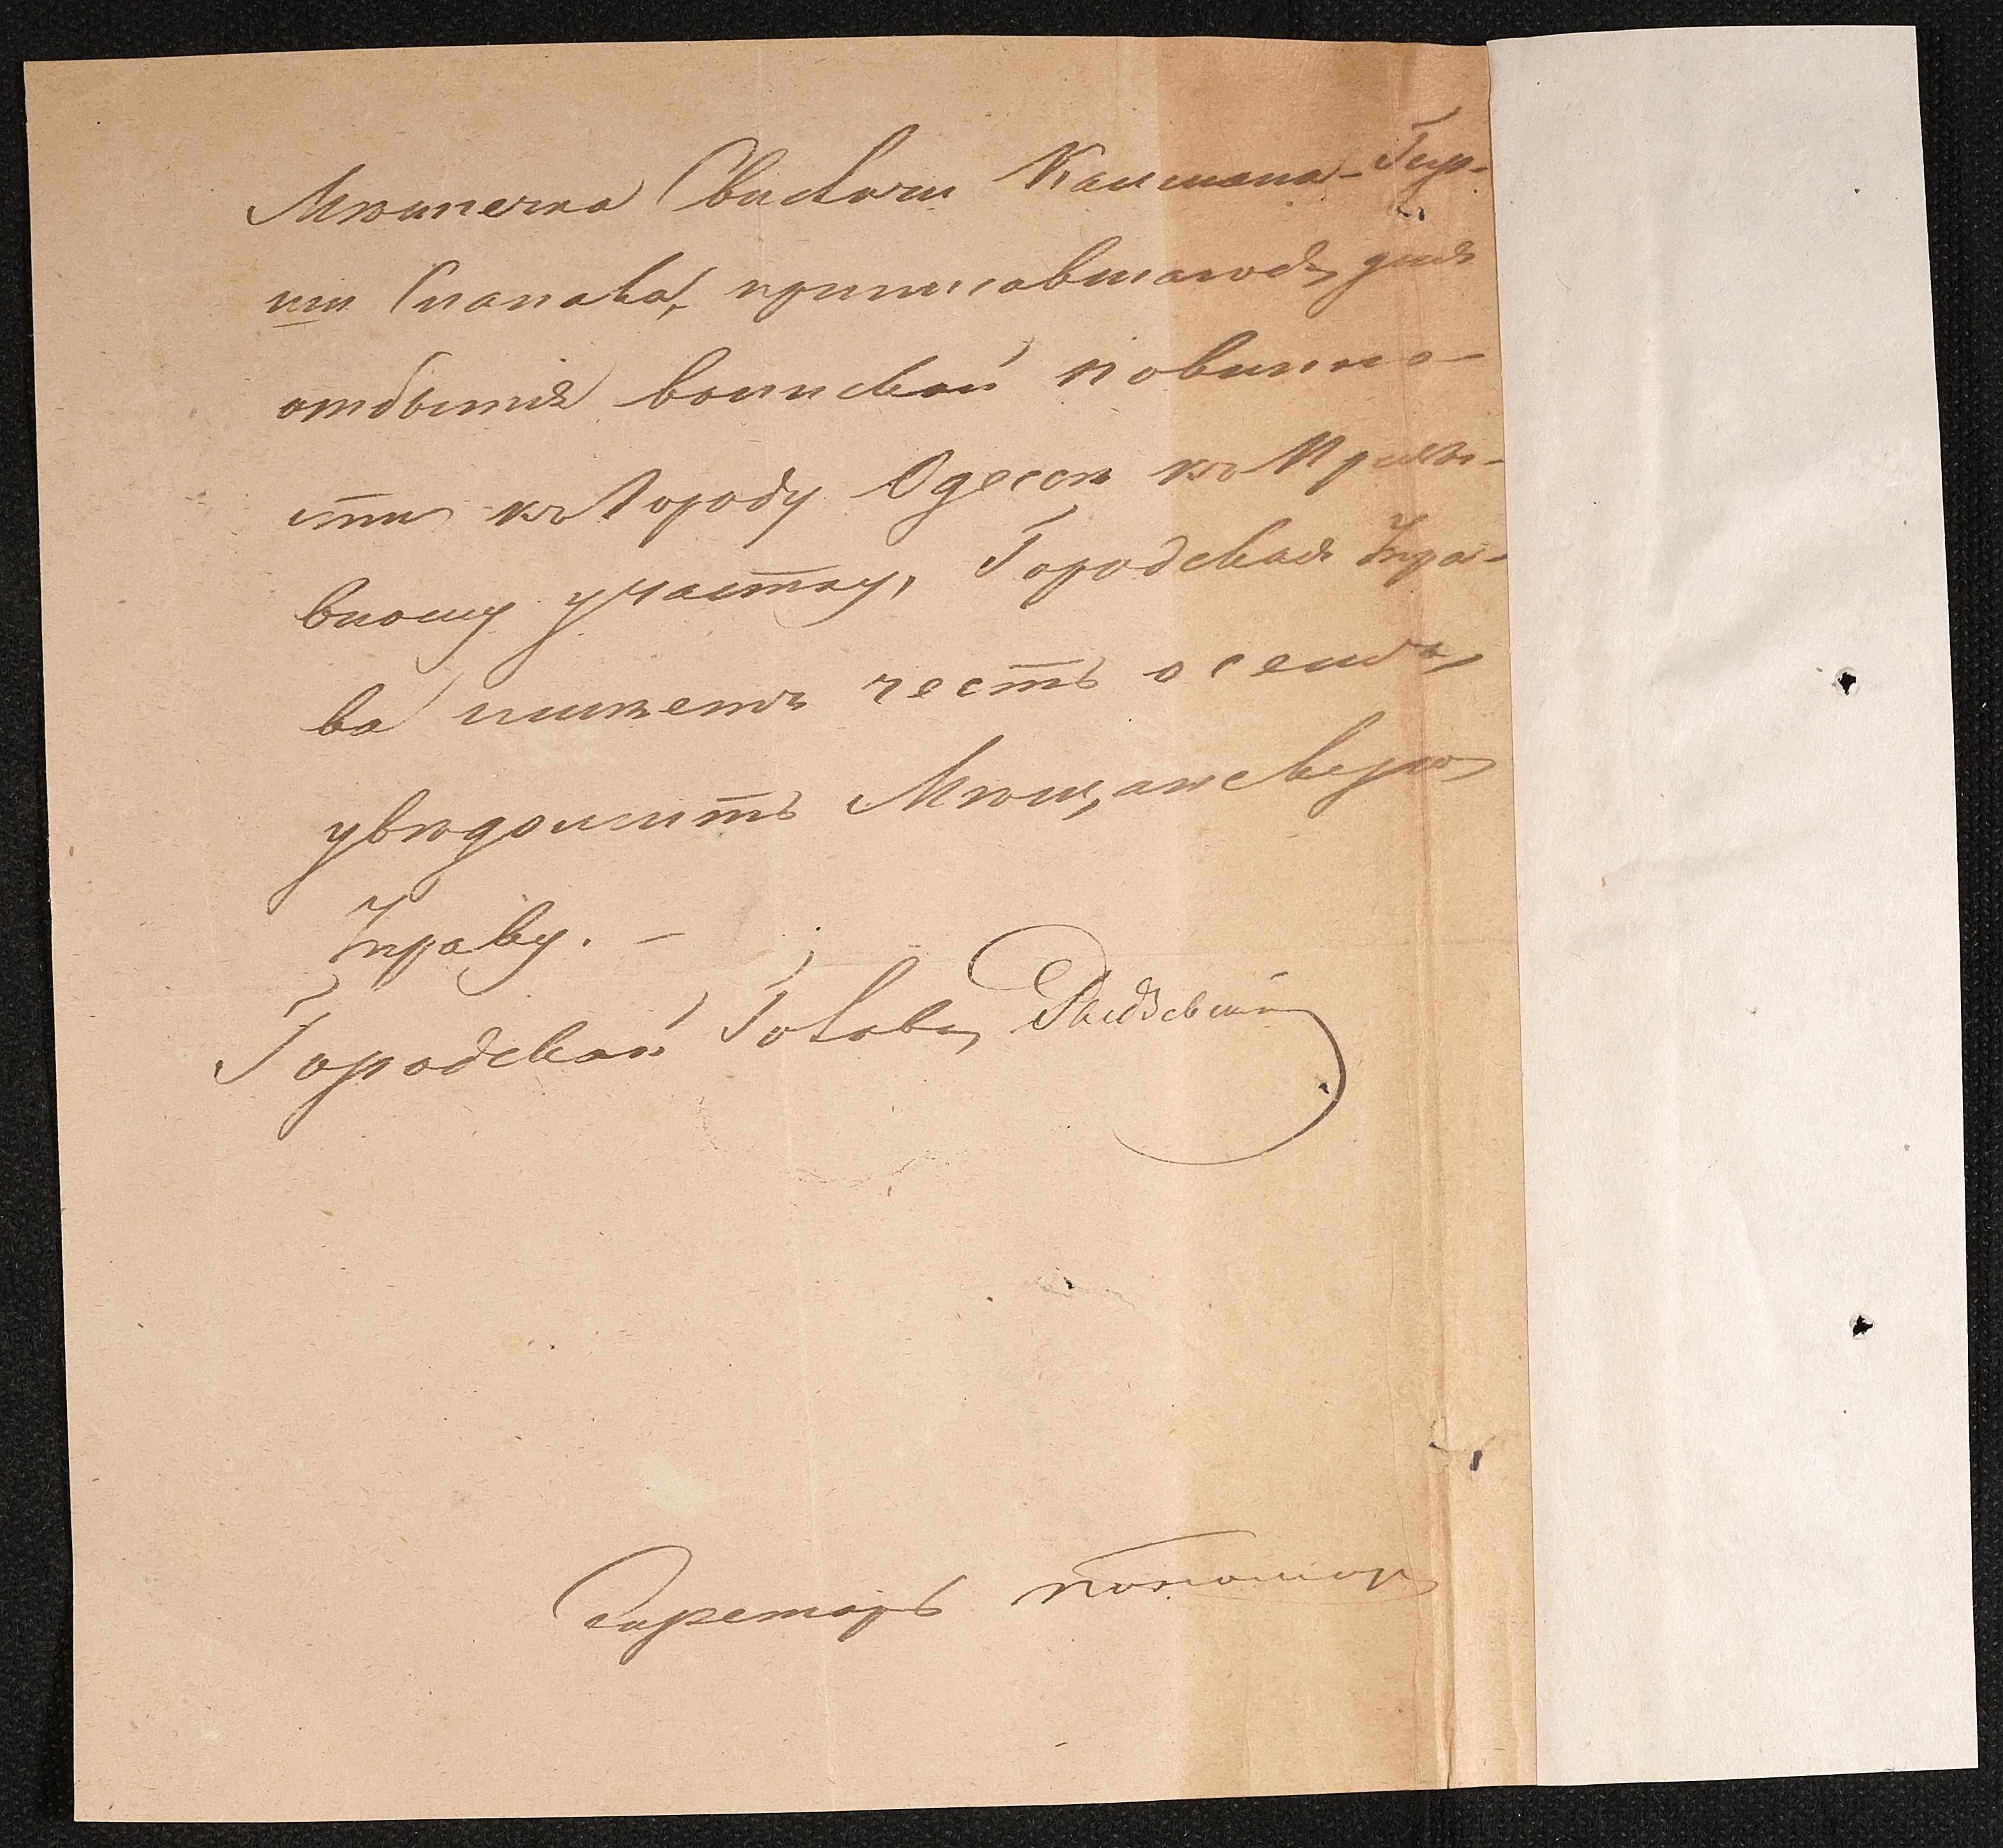 Мѣщанина Свислочи Калмана-Гир-
ши Слапака, приписавшагося для
отбытія воинской повинно-
сти къ городу Одессѣ къ Призы-
вному участку, Городская Упра-
ва имѣетъ честь о семъ
увѣдомить Мѣщанскую
Управу. –
Городской Голова
Секретарь